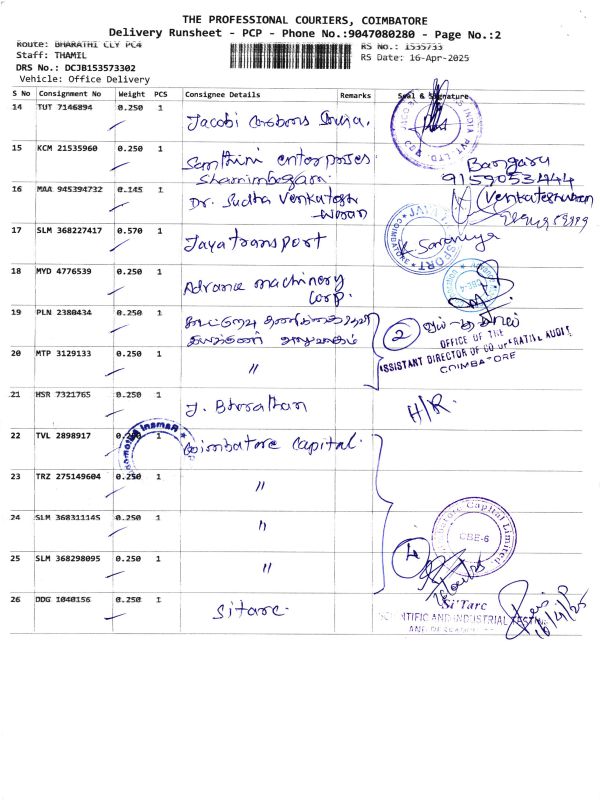 THE PROFESSIONAL COURIERS, COIMBATORE
Delivery Runsheet - PCP - Phone No.:9047080280 - Page No.:2
Route: BHARATHI CLY PC4
RS No.: 1535733
Staff: THAMIL
RS Date: 16-Apr-2025
DRS No.: DCJB153573302
Vehicle: Office Delivery
S No Consignment No Weight PCS Consignee Details Remarks Seal & Signature
14 TUT 7146894 0.250 1 Jacobi Carbons India.
15 KCM 21535960 0.250 1 Santhini enterprises
Bangaru
Shanimbegam
9159053444
16 MAA 945394732 0.145 1 Dr. Sudha Venkatesh
Venkateshwaran
-waran
17 SLM 368227417 0.570 1 Jaya transport
K. Saraniya
18 MYD 4776539 0.250 1 Advance machinery
Corp.
19 PLN 2380434 0.250 1
2
OFFICE OF THE
ASSISTANT DIRECTOR OF CO-OPERATIVE AUDIT
COIMBATORE
20 MTP 3129133 0.250 1 "
21 HSR 7321765 0.250 1 J. Bharathan
H/R.
22 TVL 2898917 0.250 1 Coimbatore Capital.
23 TRZ 275149604 0.250 1 "
24 SLM 368311145 0.250 1 "
Capital Limited.
CBE-6
25 SLM 368298095 0.250 1 "
4
26 DDG 1040156 0.250 1 Sitarc.
Si'Tarc
SCIENTIFIC AND INDUSTRIAL TESTING
16/4/25